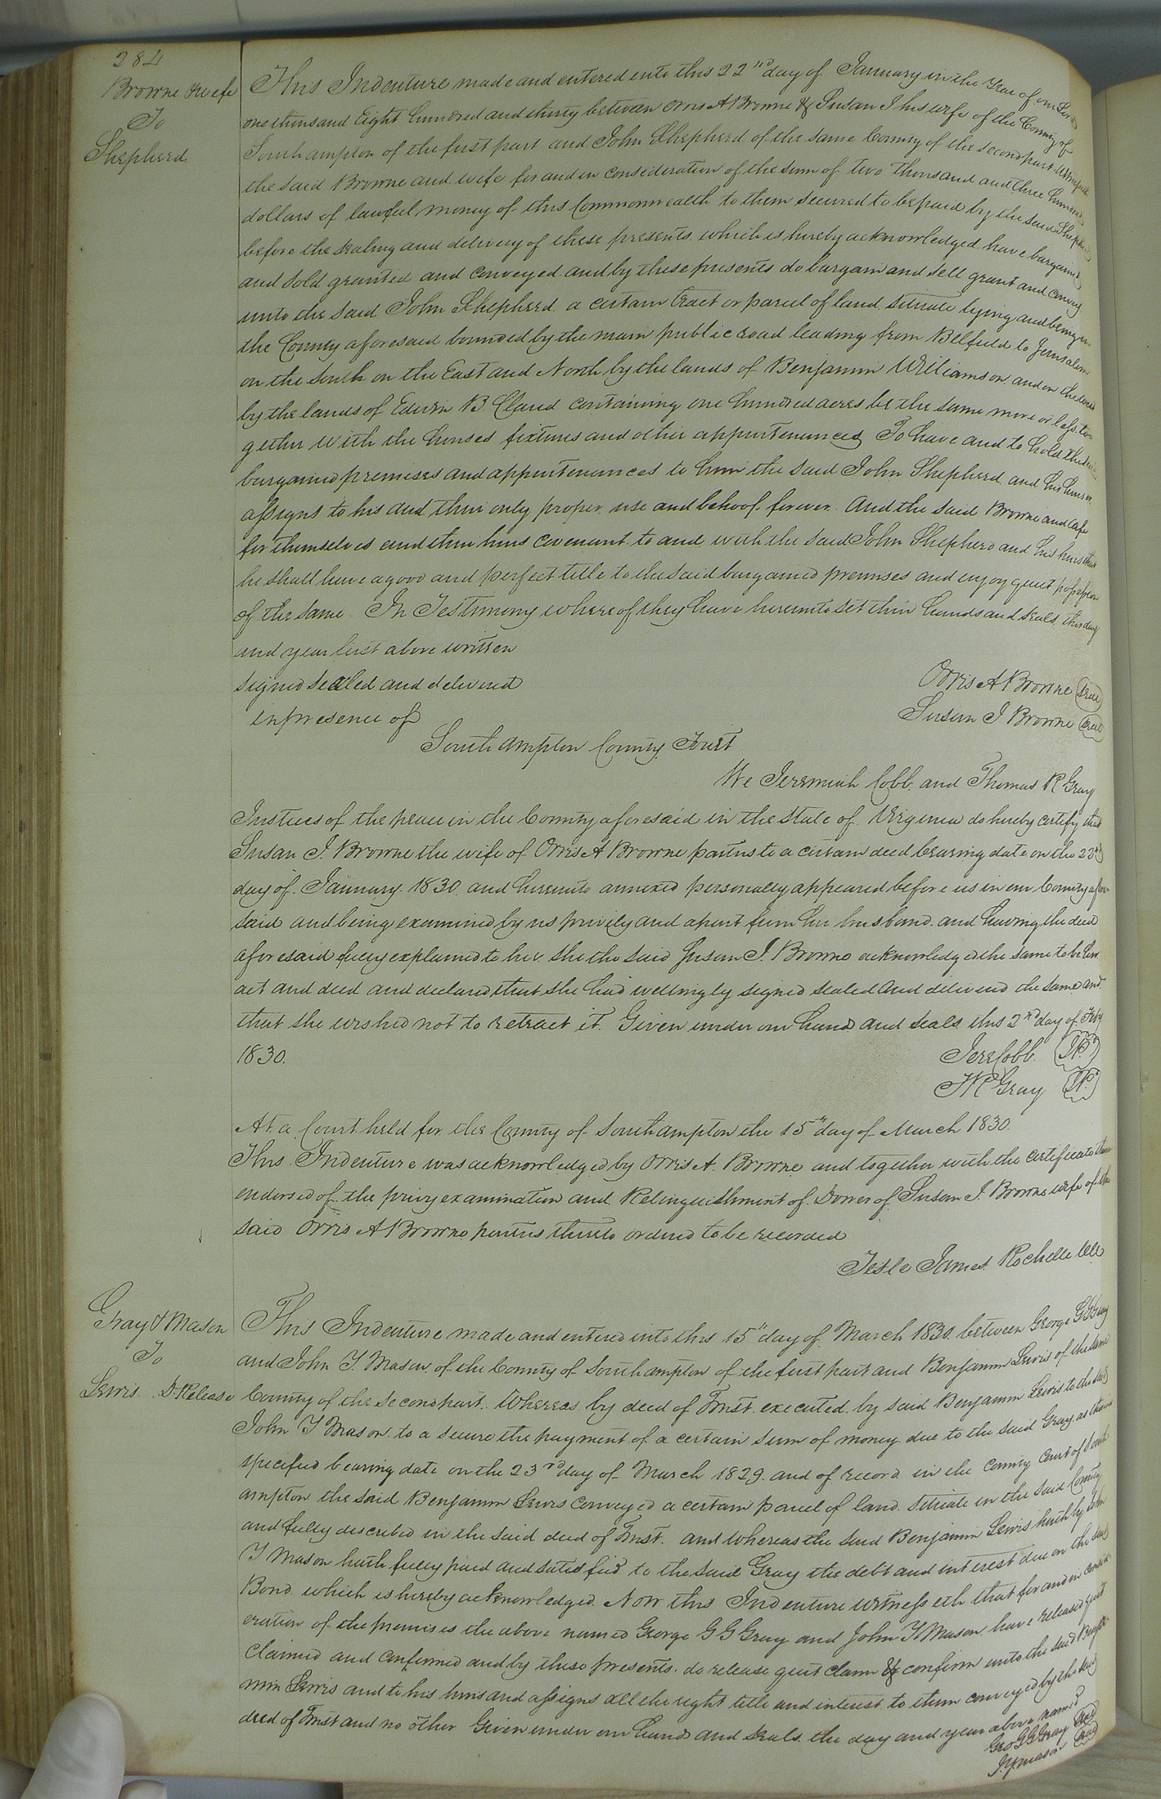 284
Browne & wife
To
Shepherd
This Indenture made and entered into this 22nd day of January in the Year of our Lord
one thousand Eight hundred and thirty between Orris A Browne & Susan J his wife of the County of
Southampton of the first part and John Shepherd of the same County of the second part Witnesseth
the said Browne and wife for and in consideration of the sum of two thousand and three hundred
dollars of lawful money of this Commonwealth to them secured to be paid by the said Shepherd
before the sealing and delivery of these presents which is hereby acknowledged have bargained
and sold granted and conveyed and by these presents do bargain and sell grant and convey
unto the said John Shepherd a certain tract or parcel of land situate lying and being in
the County aforesaid bounded by the main public road leading from Belfield to Jerusalem
on the South on the East and North by the lands of Benjamin Williamson and on the
by the lands of Edwin B Claud containing one hundred acres be the same more or less to
gether with the houses fixtures and other appurtenances To have and to hold the
bargained premises and appurtenances to him the said John Shepherd and his heirs or
assigns to his and their only proper use and behoof forever And the said Browne and wife
for themselves and their heirs covenant to and with the said John Shepherd and his heirs that
he shall have a good and perfect title to the said bargained premises and enjoy quiet possession
of the same In Testimony whereof they have hereunto set their hands and seals this day
and year first above written
signed sealed and delivered
in presence of
Orris A Browne seal
Susan J Browne seal
Southampton County Court
We Jeremiah Cobb and Thomas R Gray
Justices of the peace in the County aforesaid in the State of Virginia do hereby certify that
Susan J. Browne the wife of Orris A Browne parties to a certain deed bearing date on the 23d
day of January 1830 and hereunto annexed personally appeared before us in our County afore
said and being examined by us privily and apart from her husband and having the deed
aforesaid fully explained to her she the said Susan J. Browne acknowledged the same to be her
act and deed and declared that she had willingly signed sealed and delivered the same and
that she wished not to retract it. Given under our hands and seals this 2nd day of Feby
1830.
Jere Cobb J.P.
T R Gray J.P.
At a Court held for the County of Southampton the 15th day of March 1830
This Indenture was acknowledged by Orris A. Browne and together with the certificate thereon
endorsed of the privy examination and Relinquishment of Dower of Susan J. Browne wife of the
said Orris A Browne parties thereto ordered to be recorded
Teste James Rochelle Clk
Gray & Mason
To
Lewis D Release
This Indenture made and entered into this 15th day of March 1830 between George G G Gray
and John Y Mason of the County of Southampton of the first part and Benjamin Lewis of the same
County of the second part. Whereas by deed of Trust executed by said Benjamin Lewis to the said
John Y Mason to a secure the payment of a certain sum of money due to the said Gray as therein
specified bearing date on the 23rd day of March 1829 and of record in the County Court of South
ampton the said Benjamin Lewis conveyed a certain parcel of land situate in the said County
and fully described in the said deed of Trust. and whereas the said Benjamin Lewis hath by John
Y Mason hath fully paid and satisfied to the said Gray the debt and interest due on the said
Bond which is hereby acknowledged. Now this Indenture witnesseth that for and in consid
eration of the premises the above named George G G Gray and John Y Mason have released quit
claimed and confirmed and by these presents do release quit claim & confirm unto the said Benja
min Lewis and to his heirs and assigns all the right title and interest to them conveyed by the said
deed of Trust and no other Given under our hands and seals the day and year above named
Geo G G Gray seal
J. Y mason seal